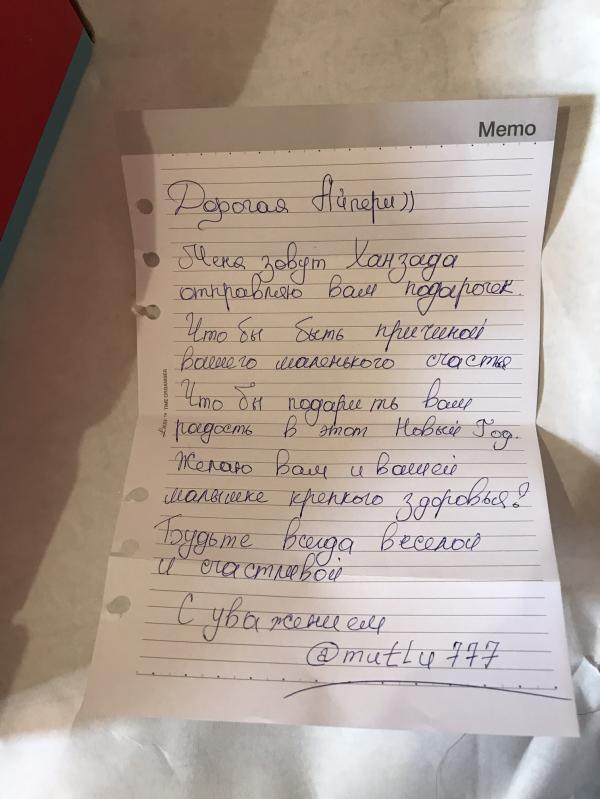 Memo
Дорогая Айпери))
Меня зовут Ханзада
отправляю вам подарочек.
Что бы быть причиной
вашего маленького счастья
Что бы подарить вам
радость в этот Новый Год.
Желаю вам и вашей
малышке крепкого здоровья!
Будьте всегда веселой
и счастливой
С уважением
@mutlu777
TIME ORGANISER